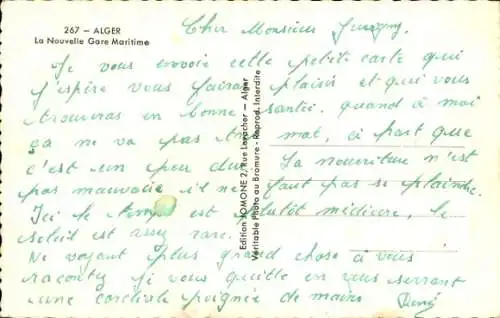 267 – ALGER
La Nouvelle Gare Maritime
Cher Monsieur
Je vous envoie cette petite carte qui
j'espère vous fairai plaisir et qui vous
trouveras en bonne santée. quand à moi
ça ne va pas mal, à part que
c'est un peu dur La nourriture n'est
pas mauvaise il ne faut pas se plaindre.
Ici le temps est plutôt médiocre, le
soleil est assez rare.
Ne voyant plus grand chose à vous
raconter je vous quitte en vous serrant
une cordiale poignée de mains René
Edition JOMONE 2, Rue Loracher – Alger
Véritable Photo au Bromure - Reprod. Interdite